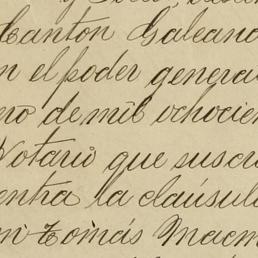 Canton Galeano
n el poder genera
ero de mil ochocien
Notario que suscri
entra la claúsula
n Tomás Macm